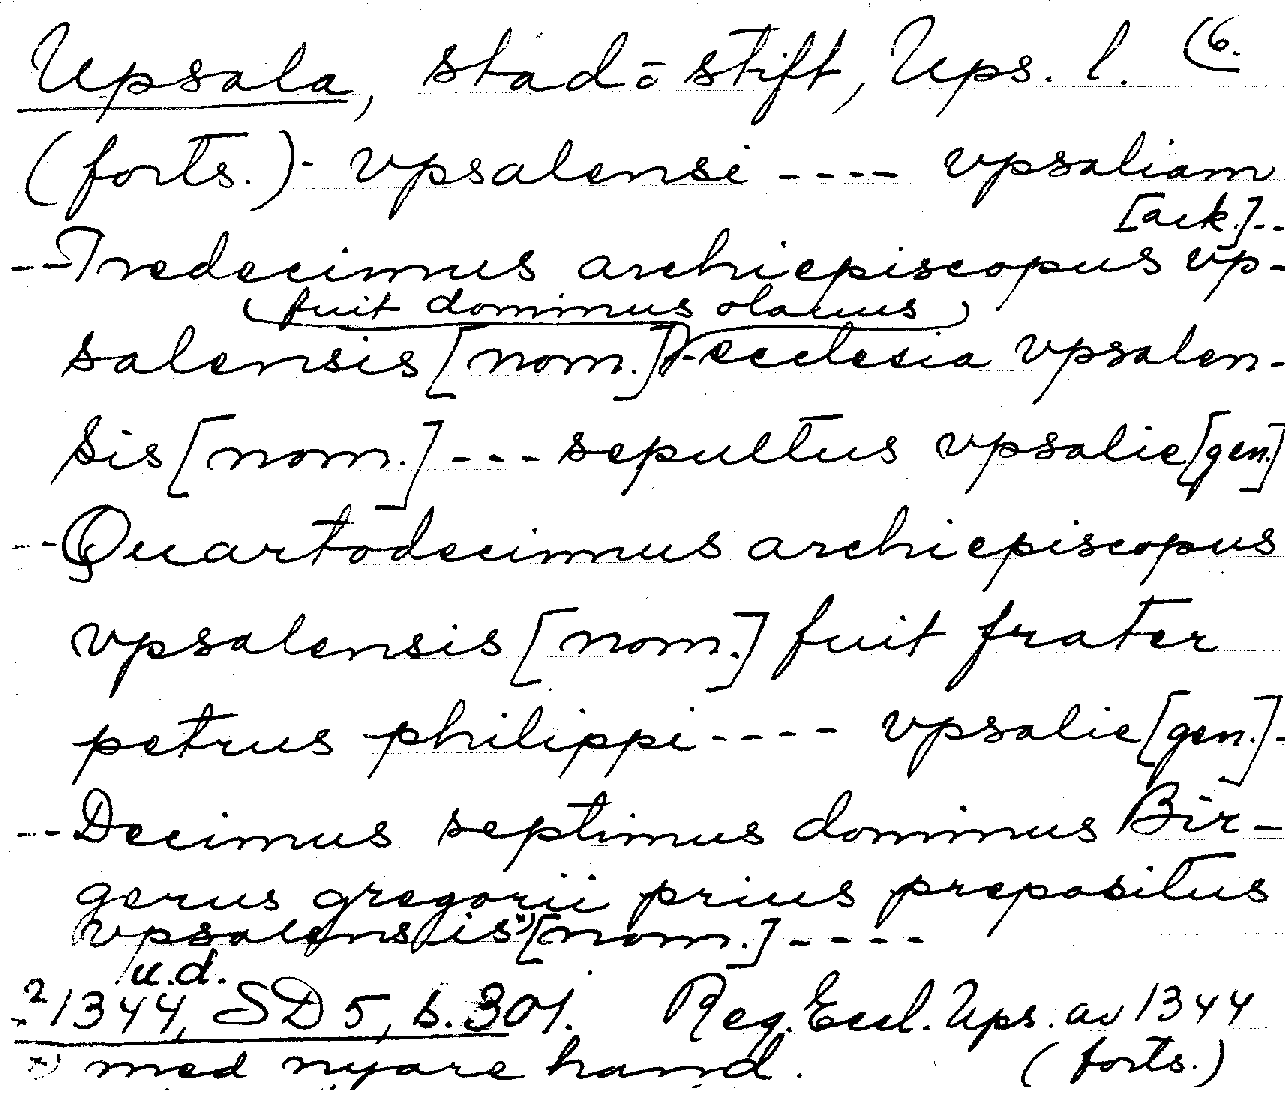 Upsala, stad o stift, Ups. l. (6.
(forts.). vpsalensi ---- vpsaliam
[ack.]--
--Tredecimus archiepiscopus vp-
(fuit dominus olauus)
salensis [nom.] --ecclesia vpsalen-
sis [nom.] --- sepultus vpsalie [gen.]
--Quartodecimus archiepiscopus
vpsalensis [nom.] fuit frater
petrus philippi ---- vpsalie [gen.]-
--Decimus septimus dominus Bir-
gerus gregorii prius prepositus
vpsalensis x) [nom.] ----
u.d.
2 1344, SD 5, s. 301. Reg. Eccl. Ups. av 1344
x) med nyare hand. (forts.)